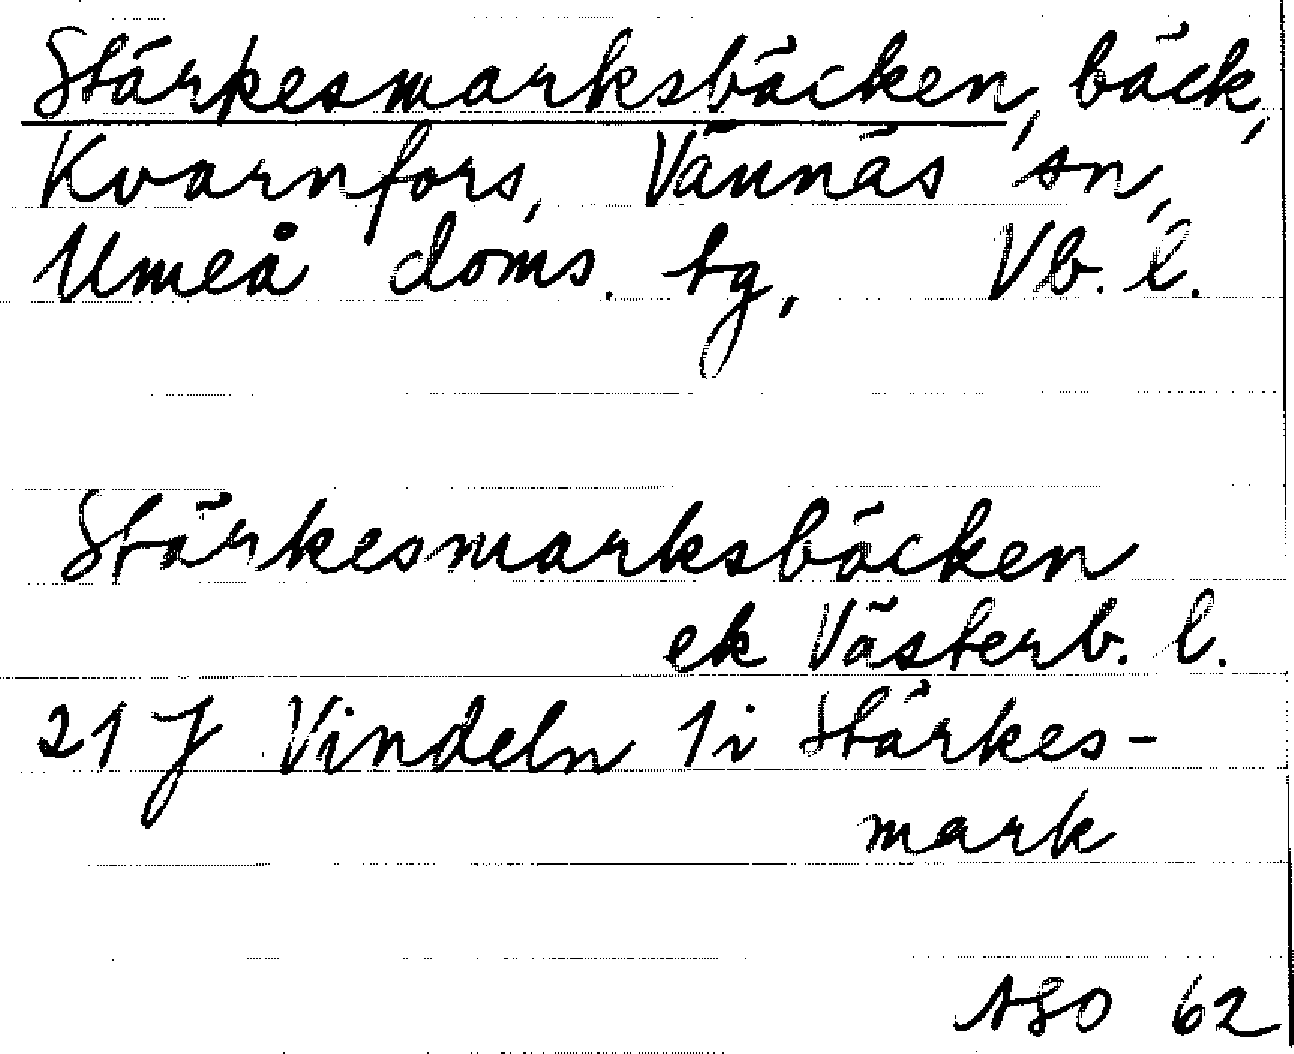 Stärkesmarksbäcken, bäck,
Kvarnfors, Vännäs sn,
Umeå doms. tg, Vb. l.
Stärkesmarksbäcken
ek Västerb. l.
21 J Vindeln 1i Stärkes-
mark
ASO 62